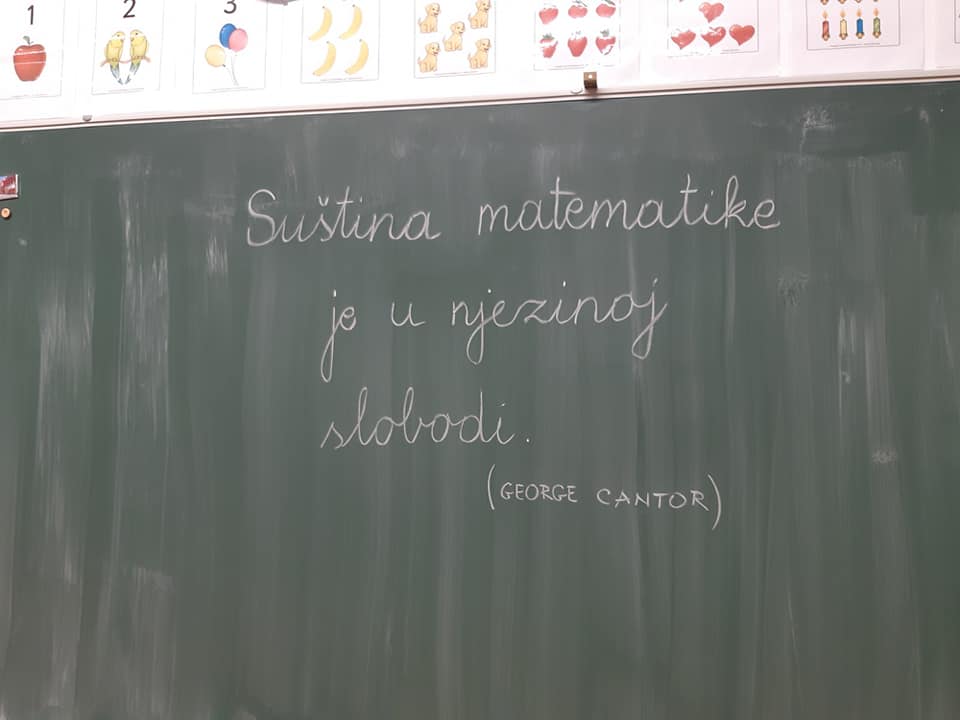 1 2 3
Suština matematike
je u njezinoj
slobodi.
(GEORGE CANTOR)